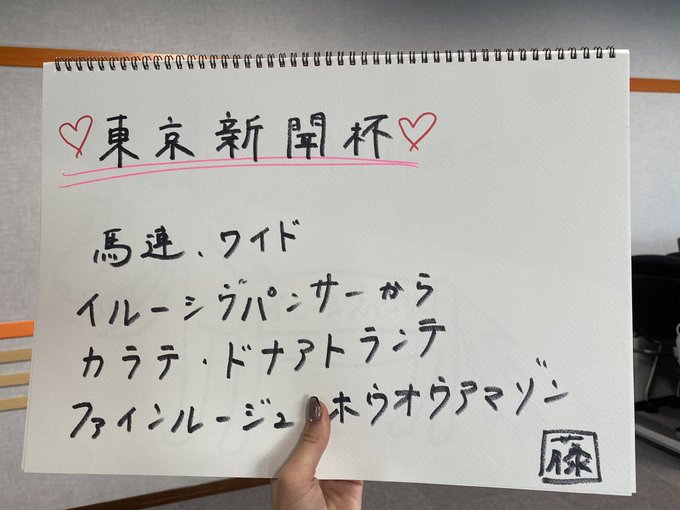 ♡東京新聞杯♡
馬連、ワイド
イルーシヴパンサーから
カラテ・ドナアトランテ
ファインルージュ ホウオウアマゾン
藤